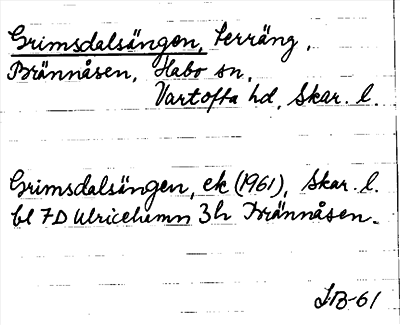 Grimsdalsängen, terräng,
Brännåsen, Habo sn,
Vartofta hd, Skar. l.
Grimsdalsängen, ek (1961), Skar. l.
bl 7D Ulricehamn 3h Brännåsen.
IB-61